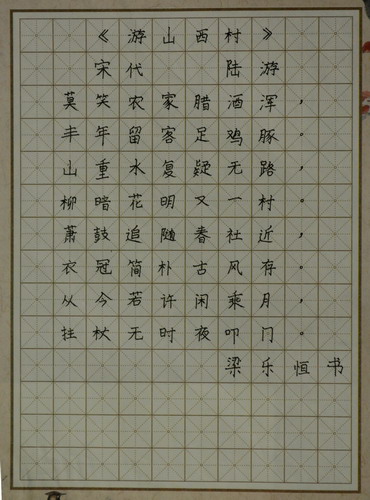 《游山西村》
宋代 陆游
莫笑农家腊酒浑，
丰年留客足鸡豚。
山重水复疑无路，
柳暗花明又一村。
萧鼓追随春社近，
衣冠简朴古风存。
从今若许闲乘月，
拄杖无时夜叩门。
梁乐恒书